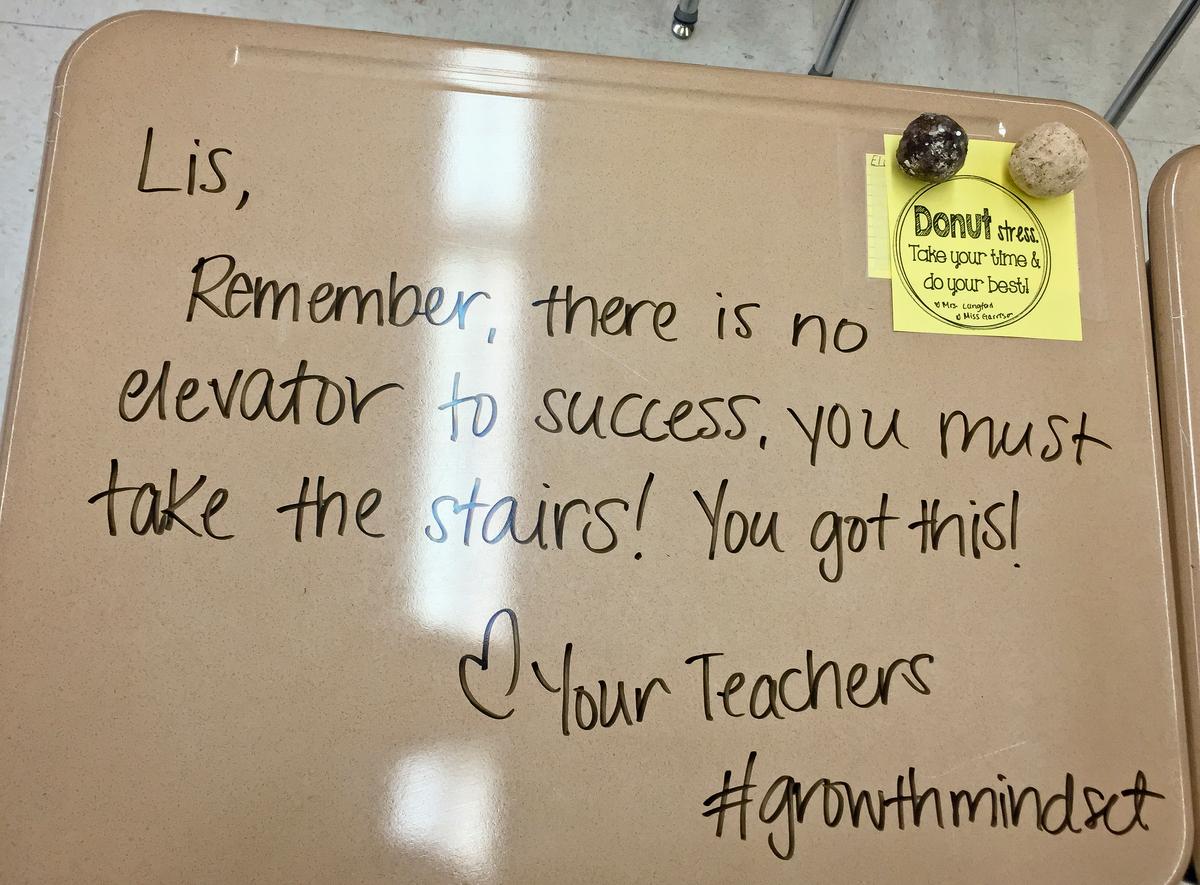 Lis,
Remember, there is no
elevator to success, you must
take the stairs! You got this!
♡ Your Teachers
#growthmindset
Donut stress.
Take your time &
do your best!
♡ Mrs. Langton
♡ Miss Garrison